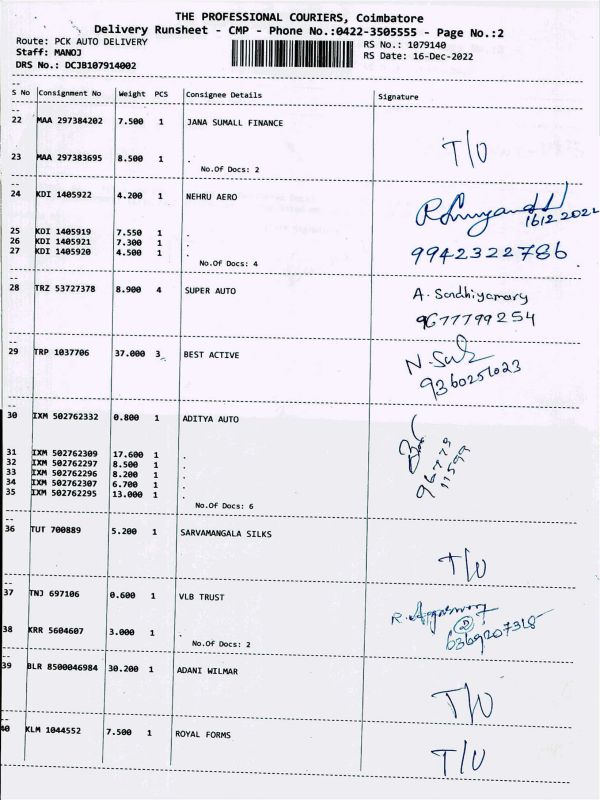 THE PROFESSIONAL COURIERS, Coimbatore
Delivery Runsheet - CMP - Phone No.:0422-3505555 - Page No.:2
Route: PCK AUTO DELIVERY RS No.: 1079140
Staff: MANOJ RS Date: 16-Dec-2022
DRS No.: DCJB107914002
S No Consignment No Weight PCS Consignee Details Signature
22 MAA 297384202 7.500 1 JANA SUMALL FINANCE
T/O
23 MAA 297383695 8.500 1 .
No.Of Docs: 2
24 KDI 1405922 4.200 1 NEHRU AERO
16.12.2022
25 KDI 1405919 7.550 1 .
26 KDI 1405921 7.300 1 .
27 KDI 1405920 4.500 1 .
9942322786
No.Of Docs: 4
28 TRZ 53727378 8.900 4 SUPER AUTO
A. Sandhiyamary
9677799254
29 TRP 1037706 37.000 3 BEST ACTIVE
9360251023
30 IXM 502762332 0.800 1 ADITYA AUTO
31 IXM 502762309 17.600 1 .
32 IXM 502762297 8.500 1 .
33 IXM 502762296 8.200 1 .
34 IXM 502762307 6.700 1 .
35 IXM 502762295 13.000 1 .
96779
11599
No.Of Docs: 6
36 TUT 700889 5.200 1 SARVAMANGALA SILKS
T/O
37 TNJ 697106 0.600 1 VLB TRUST
38 KRR 5604607 3.000 1 .
6369207318
No.Of Docs: 2
39 BLR 8500046984 30.200 1 ADANI WILMAR
T/O
40 KLM 1044552 7.500 1 ROYAL FORMS
T/O